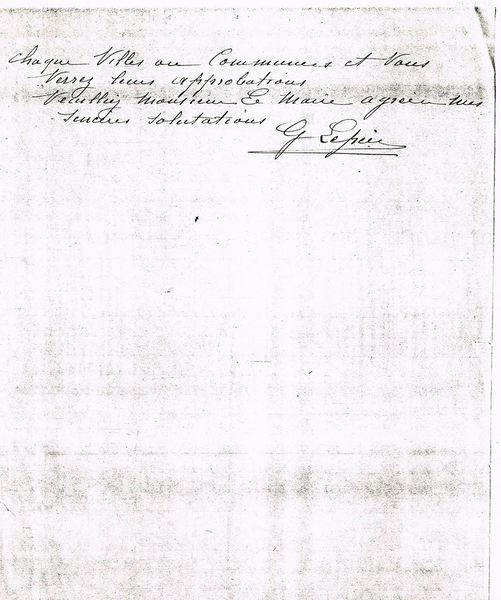 chaque Villes ou Communes et Vous
Verrez leurs approbations
Veuillez Monsieur Le Maire agréer mes
Sincères salutations
G Lepin